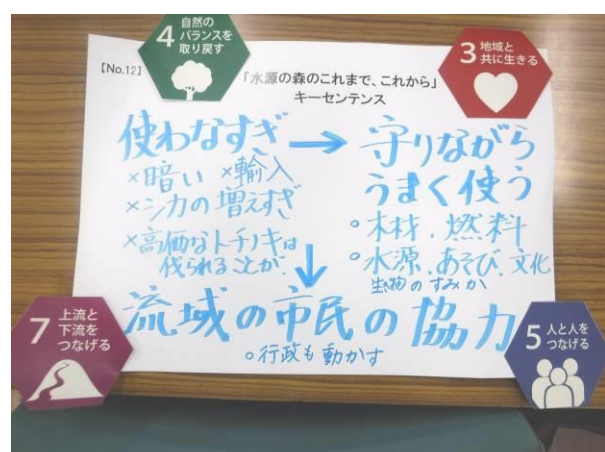 4 自然の
バランスを
取り戻す
3 地域と
共に生きる
【No.12】
「水源の森のこれまで、これから」
キーセンテンス
使わなすぎ → 守りながら
うまく使う
×暗い ×輸入
×シカの増えすぎ
×高価なトチノキは
伐られることが
↓
○木材、燃料
○水源、あそび、文化
生物のすみか
流域の市民の協力
○行政も動かす
7 上流と
下流を
つなげる
5 人と人を
つなげる